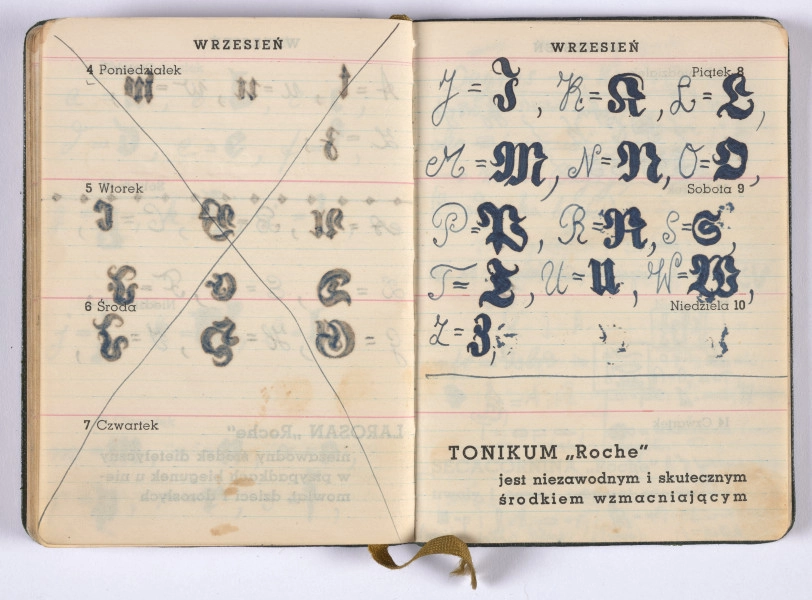 WRZESIEŃ
4 Poniedziałek
5 Wtorek
6 Środa
7 Czwartek
WRZESIEŃ
Piątek 8
J = J, K = K, L = L,
M = M, N = N, O = O,
Sobota 9
P = P, R = R, S = S,
T = T, U = U, W = W,
Niedziela 10
Z = Z,
TONIKUM „Roche"
jest niezawodnym i skutecznym
środkiem wzmacniającym